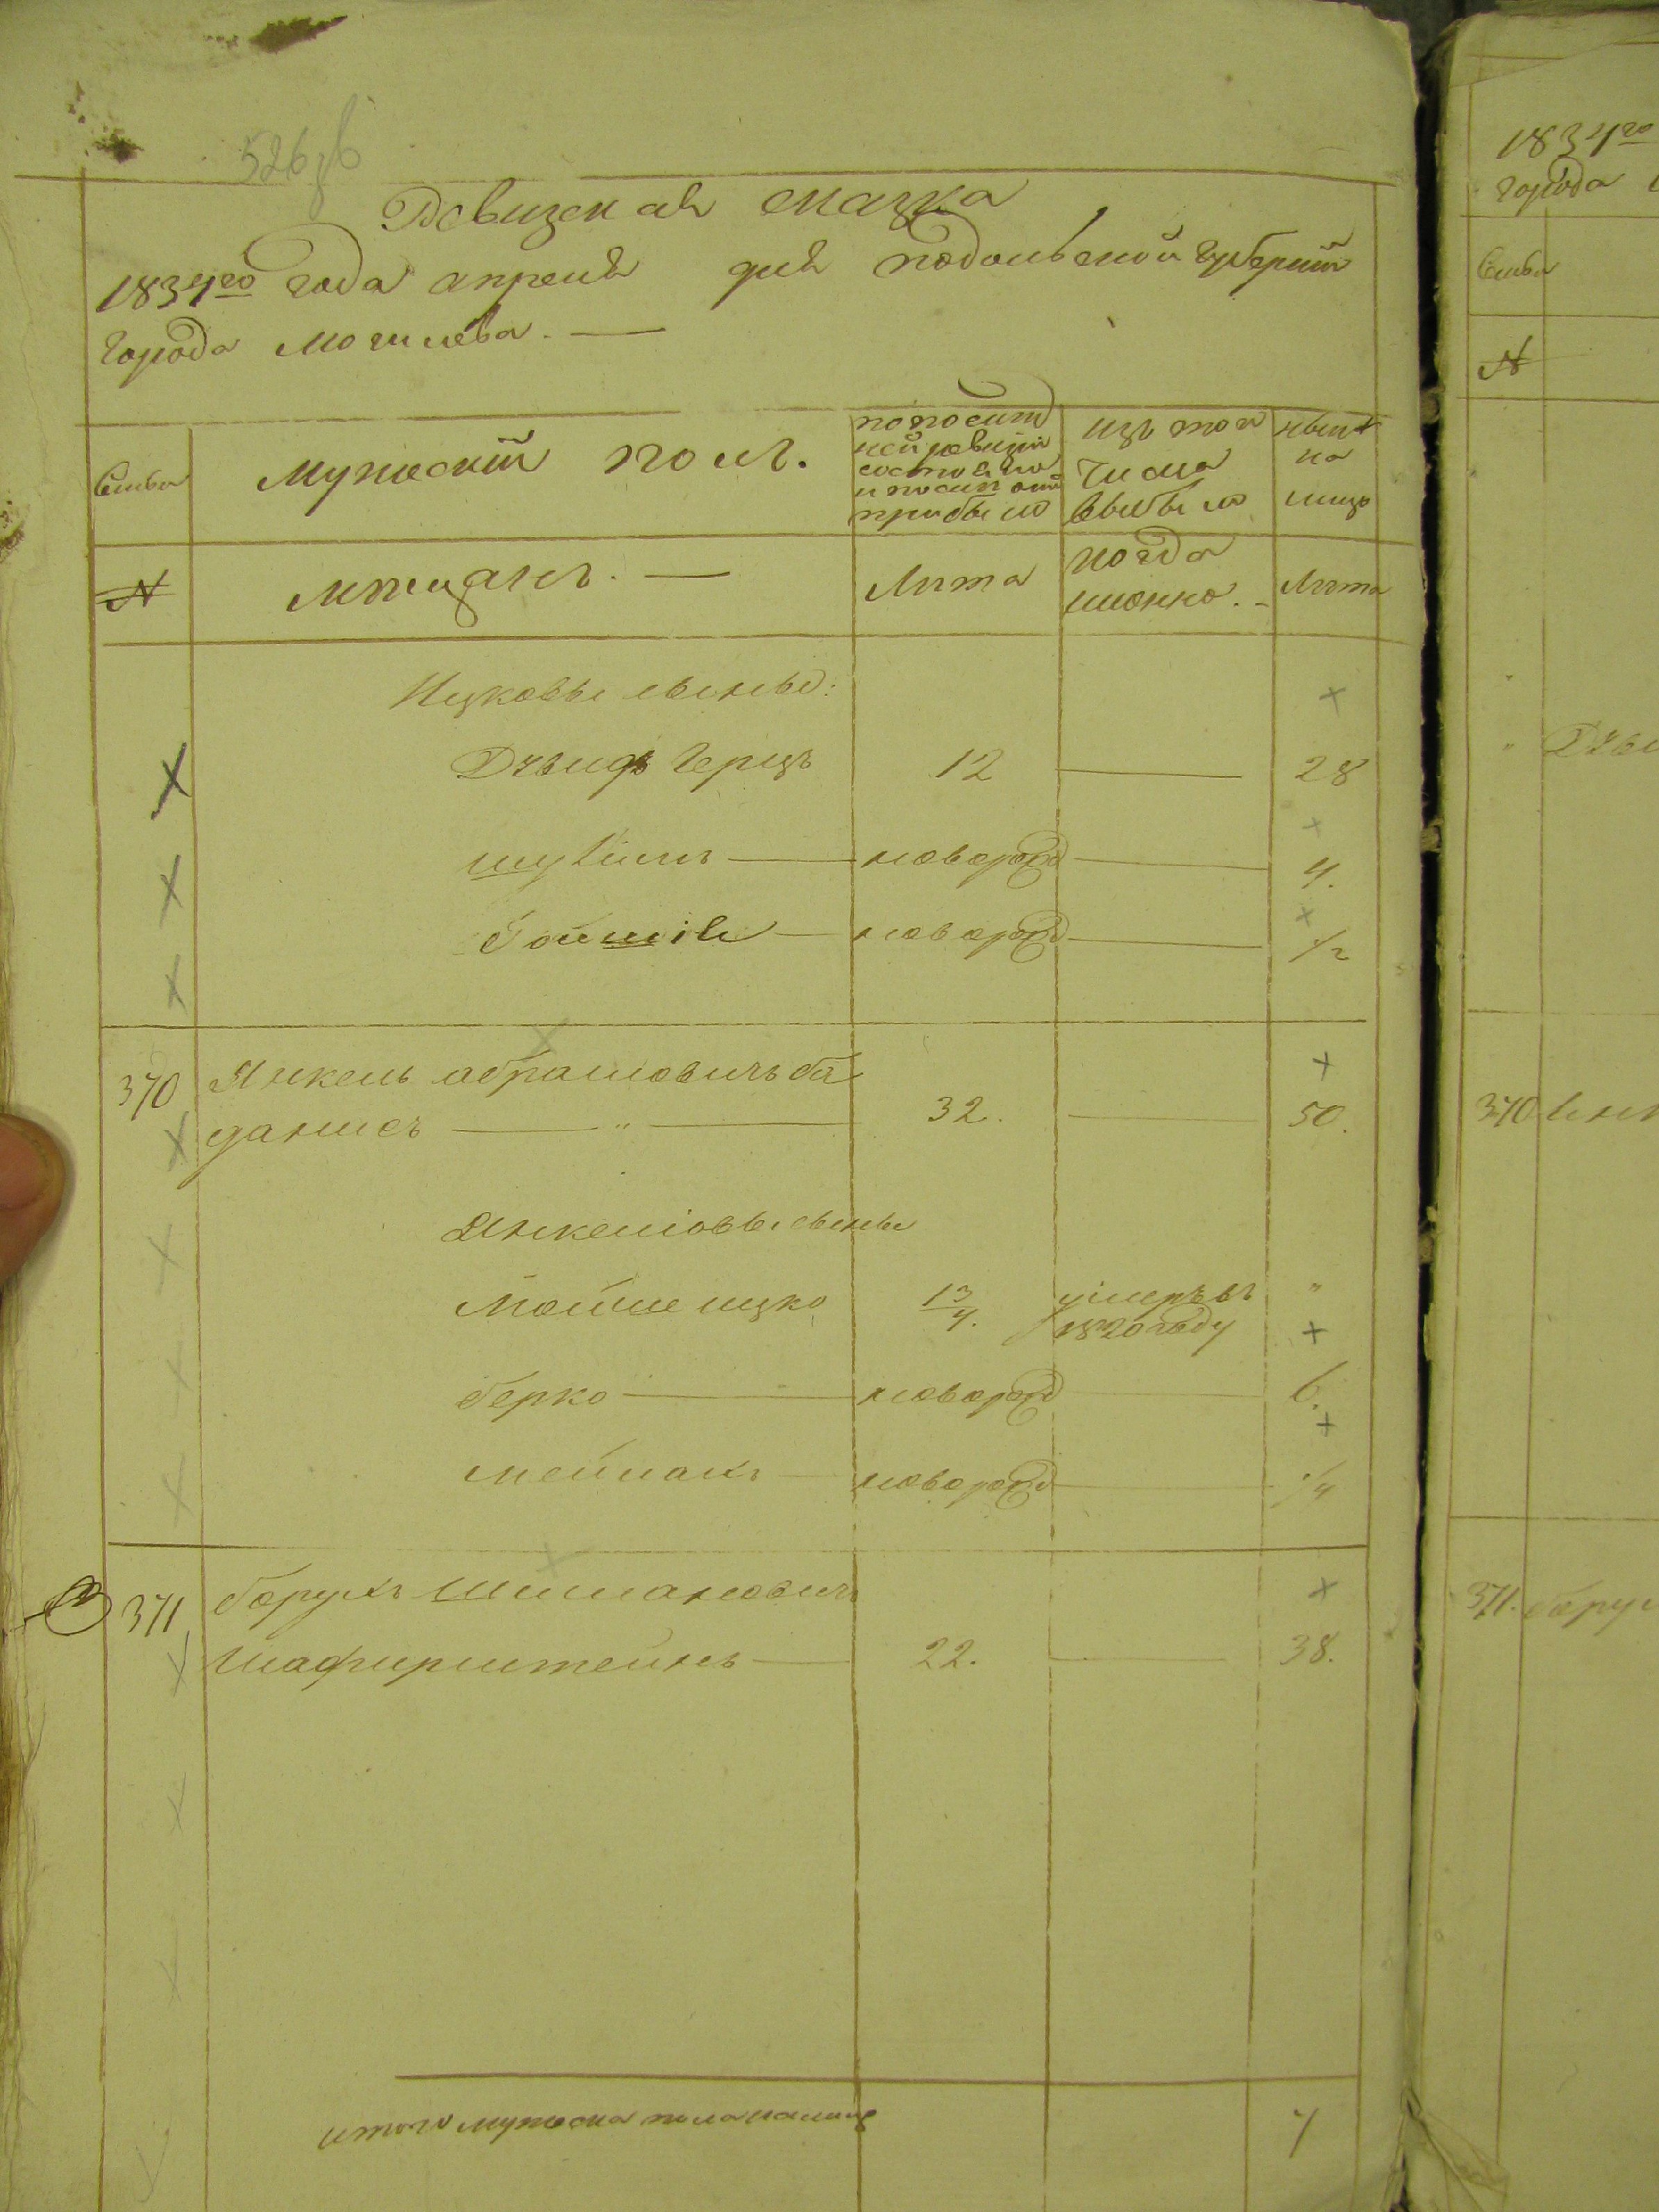 526 об
Ревизская сказка
1834го года апреля дня подольской губернiи
города могилева. —
Семьи
мужескiй полъ.
по послед
ней ревизiи
состояло
и после оной
прибыло
изъ того
числа
выбыло
ныне
на
лицо
№
мещанъ. —
Лѣта
когда
имянно. –
Лѣта
Ицковы сыновья:
Дувидъ Герцъ 12 — 28
— новорожд — 4.
— новорожд — 1/2
370 Янкель абрамовичъ ба
данисъ — " — 32. — 50.
Янкелiовы сыновья
Мойше ицко 13/4. умеръ въ "
1820 году
берко — новорожд — 6.
мейлахъ — новорожд — 1/4
371 борухъ Шимановичъ
шафирштейнъ — 22. — 38.
итого мужеска пола налице 7
1834го
города
Семьи
№
370
371. бору